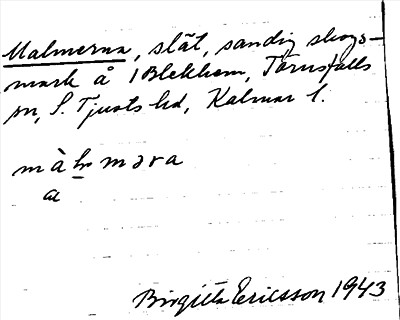 Malmerna, slät, sandig skogs-
mark å 1 Blekhem, Törnsfalls
sn, S. Tjusts hd, Kalmar l.
màlməra
Birgitta Ericsson 1943